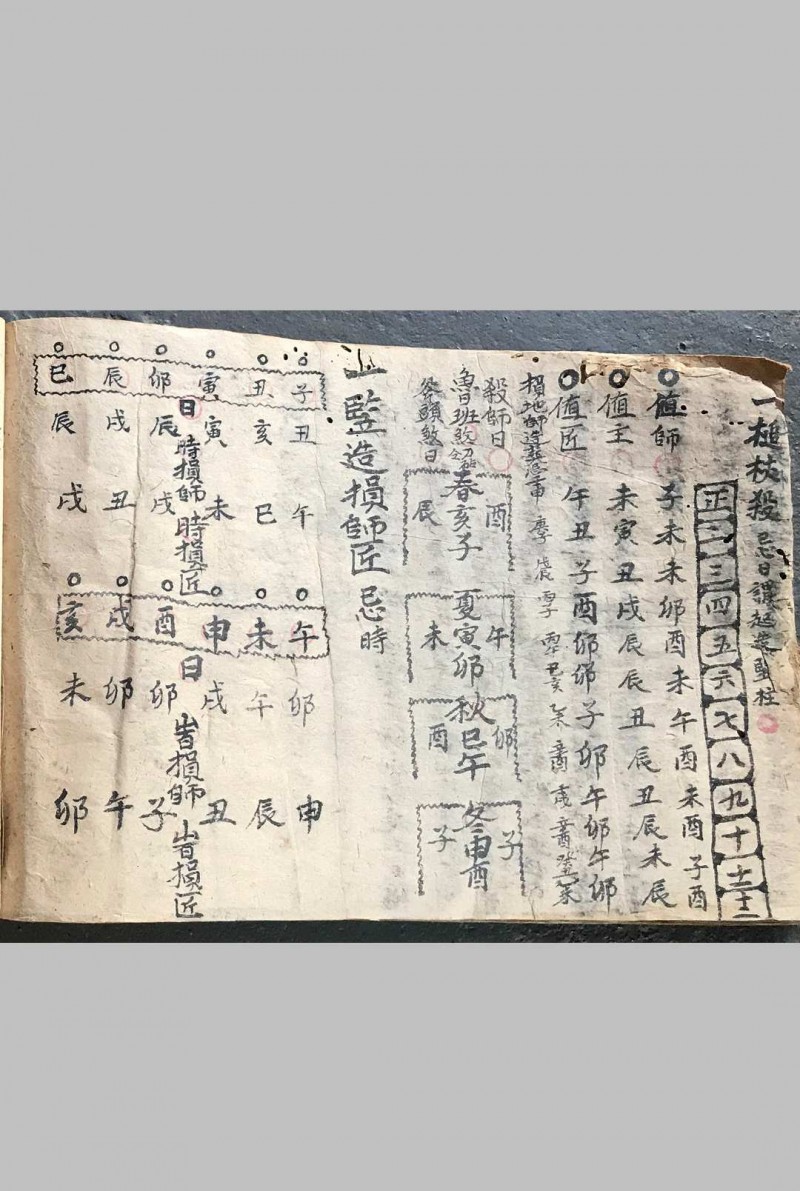 一槌杖殺 忌日課起造豎柱
正二三四五六七八九十十一十二
值師 子未未卯酉未午酉未酉子酉
值主 未寅丑戌辰辰丑辰丑辰未辰
值匠 午丑子酉卯卯子卯午卯午卯
損地師
殺師日 酉 午 卯 子
魯班煞 春亥子 夏寅卯 秋巳午 冬申酉
斧頭煞日 辰 未 酉 子
一豎造損師匠忌時
子 丑 午 午 卯 申
丑 亥 巳 未 午 辰
寅 寅 未 申 戌 丑
日 時損師 時損匠 日 時損師 時損匠
卯 辰 戌 酉 卯 子
辰 戌 丑 戌 卯 午
巳 辰 戌 亥 未 卯